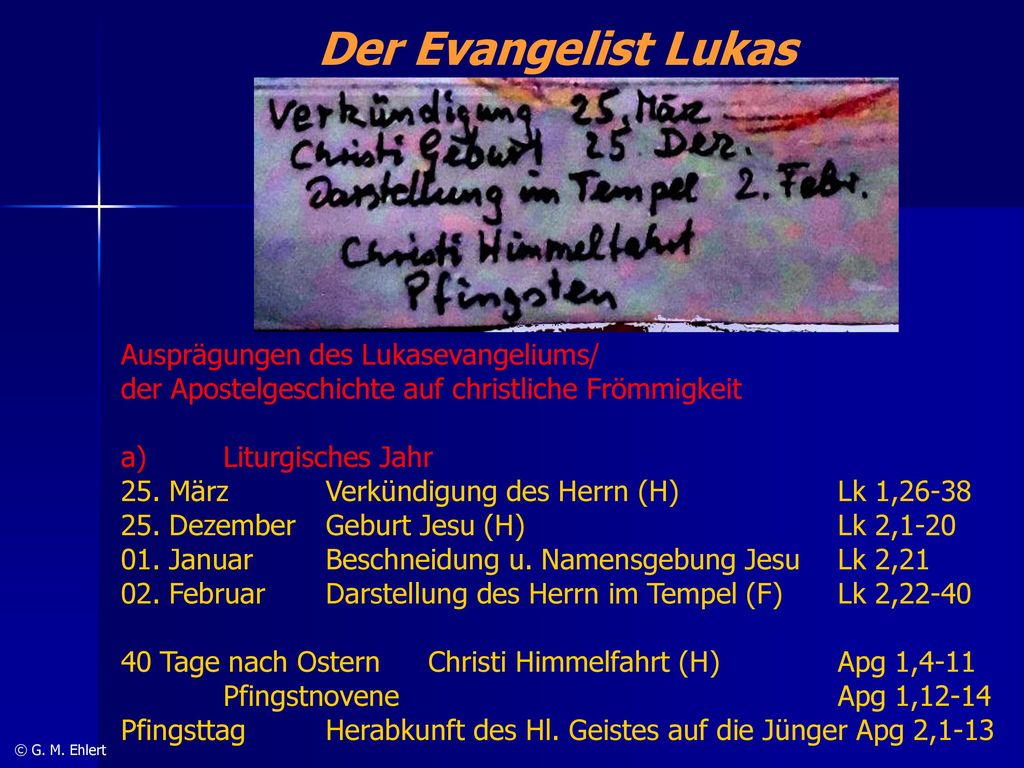 Der Evangelist Lukas
Verkündigung 25. März
Christi Geburt 25 Dez.
Darstellung im Tempel 2. Febr.
Christi Himmelfahrt
Pfingsten
Ausprägungen des Lukasevangeliums/
der Apostelgeschichte auf christliche Frömmigkeit
a) Liturgisches Jahr
25. März Verkündigung des Herrn (H) Lk 1,26-38
25. Dezember Geburt Jesu (H) Lk 2,1-20
01. Januar Beschneidung u. Namensgebung Jesu Lk 2,21
02. Februar Darstellung des Herrn im Tempel (F) Lk 2,22-40
40 Tage nach Ostern Christi Himmelfahrt (H) Apg 1,4-11
Pfingstnovene Apg 1,12-14
Pfingsttag Herabkunft des Hl. Geistes auf die Jünger Apg 2,1-13
© G. M. Ehlert